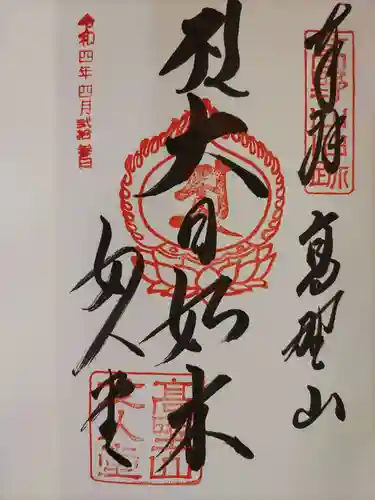 奉拝
高野山
大日如来
女人堂
令和四年四月弐拾壱日
高野山
女人堂